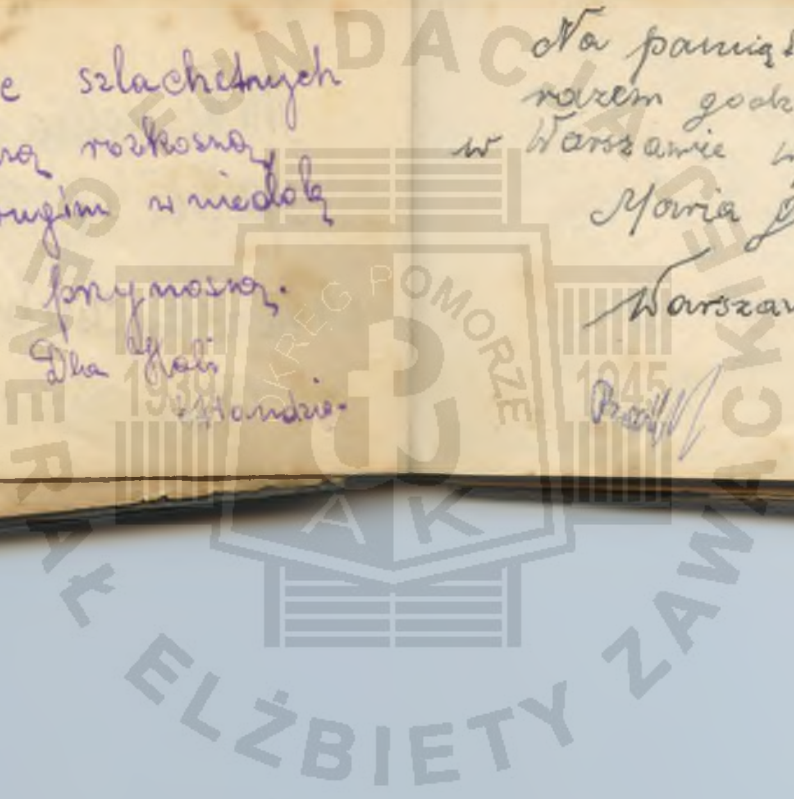 e szlachetnych
są rozkoszną,
rugim w niedolę
przynoszą.
Dla Hali
Na pamią
razem godz
w Warszawie w
Maria
Warszaw
FUNDACJA
GENERAŁ ELŻBIETY ZAWACKIEJ
OKRĘG POMORZE
1939
1945
AK